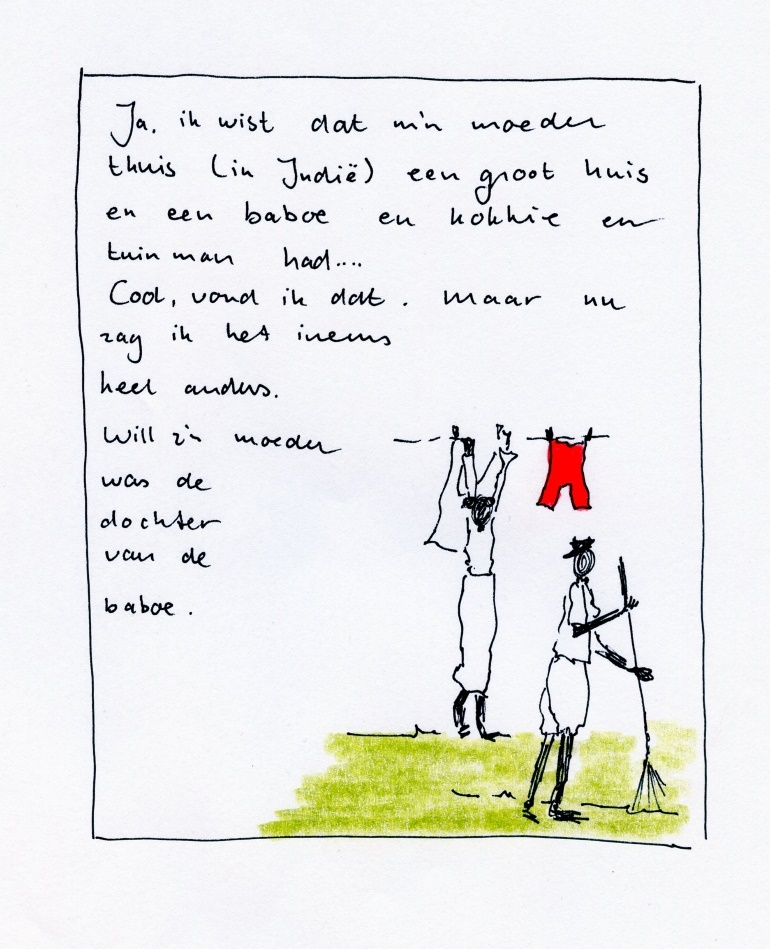 Ja, ik wist dat m'n moeder
thuis (in Indië) een groot huis
en een baboe en kokkie en
tuinman had....
Cool, vond ik dat. Maar nu
zag ik het ineens
heel anders.
Will z'n moeder
was de
dochter
van de
baboe.